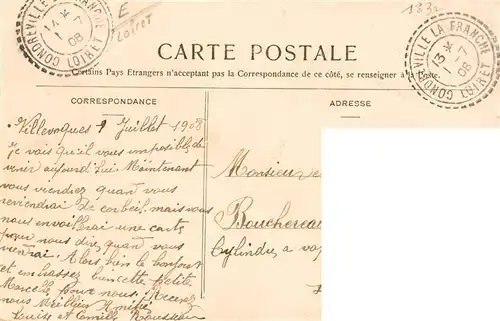 E
Loiret
183
GONDREVILLE LA FRANCHE
14 * 7 08
LOIRET
GONDREVILLE LA FRANCHE
13 * 7 08
LOIRET
CARTE POSTALE
Certains Pays Etrangers n'acceptant pas la Correspondance de ce côté, se renseigner à la Poste.
CORRESPONDANCE
ADRESSE
Villevoques 9 Juillet 1908
Je vais qu'il vous imposible de
venir aujourd'hui. Maintenant
vous viendrez quant vous
reviendrai De Corbeil, mais vous
nous envaillrai une carte
pour nous dire quant vous
viendrai. Alors bien le bonjour
et embasser bien cette petite
Marcelle pour nous. Recevez
nous Meillieu Amitié
Louise et Camille Rousseau
Monsieur
Bouchereau
Cylindre a vap